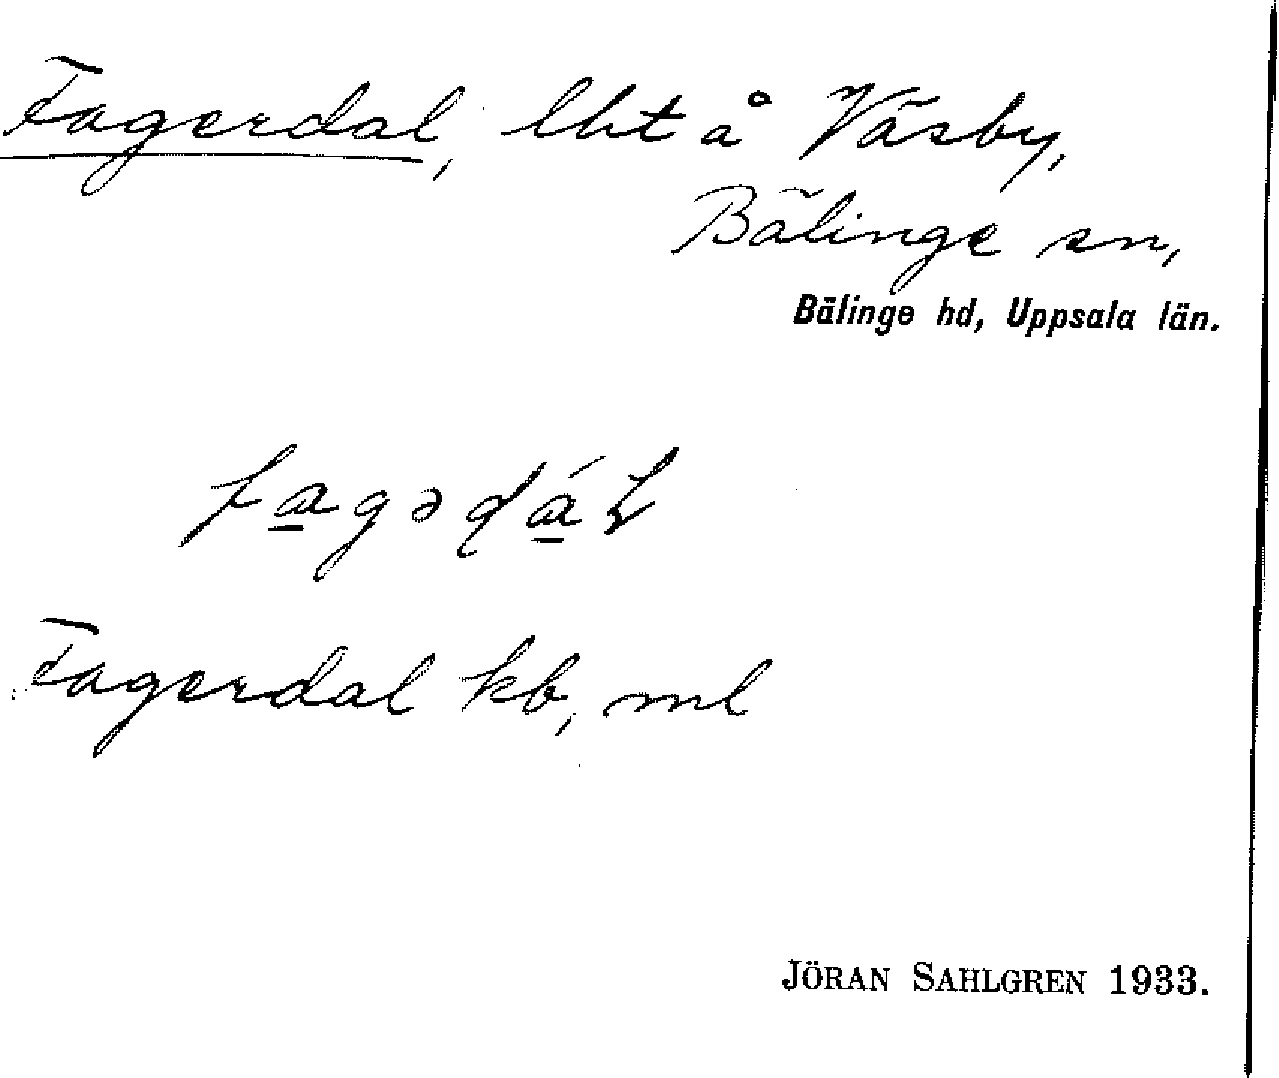 Fagerdal, lht å Väsby,
Bälinge sn,
Bälinge hd, Uppsala län.
fagədáɫ
Fagerdal kb, ml
JÖRAN SAHLGREN 1933.